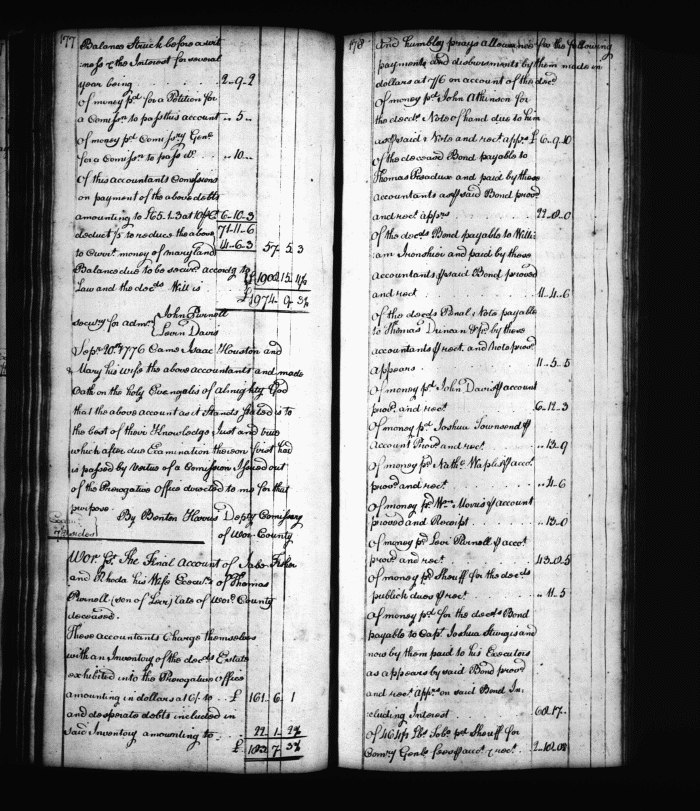 177
Balance Struck before a wit
ness & the Interest for several
year being 2-9-2
Of money pd for a Petition for
a Comissr to pass this account .. 5 ..
Of money pd Comissry Genl
for a Comissr to pass do .. 10 ..
Of this accountants Comissions
on payment of the above debts
amounting to £65.1.3 at 10 P Ct 6-10-3
deduct 1/5 to reduce the above 71-11-6
to Currt money of maryland 14-6-3 57 5 3
Balance due to be secured accordg to
Law and the decds Will is £ 1902 15 11½
£ 1974 9 3½
Security for admr John Purnell
Levin Davis
Sepr 20th 1776 Came Isaac Houston and
Mary his wife the above accountants and made
Oath on the holy Evangelis of Almighty God
that the above account as it Stands Stated is to
the best of their Knowledge Just and true
which after due Examination thereon first had
is passed by Vertue of a Comission Issued out
of the Prerogative Office directed to me for that
purpose
By Benton Harris Depty Comissary
of Wor County
Wor. Ss. The Final Account of Jabe Fisher
and Rhoda his Wife Execut. of Thomas
Purnell (son of Levi) late of Wor. County
deceased.
These Accountants Charge themselves
with an Inventory of the decds Estate
exhibited into the Prerogative Office
amounting in dollars at 6/ to £ 161 6 1
and desperate debts included in
Said Inventory amounting to 22 1 2½
£ 183 7 3½
178
And humbly prays allowance for the following
payments and disbursements by them made in
dollars at 7/6 on account of the decd
Of money pd John Atkinson for
the decds Note of hand due to him
as P said Note and rect apprs £ 6-9-10
Of the deceased Bond payable to
Thomas and paid by these
accountants as P said Bond provd
and rect apprs 22-0-0
Of the decds Bond payable to Willi
am Ironshier and paid by these
accountants P said Bond proved
and rect 11-4-6
Of the decds Penal Note payable
to Thomas Duncan & Pd by these
accountants P rect. and Note provd
appears 11-5-5
Of money pd John Davis P account
provd and rect 6-12-3
Of money pd Joshua Townsend P
account Provd and rect .. 13-9
Of money pd Nathl Waples P acct
provd and rect .. 4-6
Of money pd Wm Morris P account
proved and Receipt .. 13-0
Of money pd Levi Purnell P acct
provd and rect 43-0-5
Of money pd Sheriff for the decds
publick dues P rect .. 11-5
Of money pd for the decds Bond
payable to Capt. Joshua Sturgis and
now by them paid to his Executors
as appears by said Bond provd
and rect apprs on said Bond In
cluding Interest 60-17-
Of 464½ lbs Tobo pd Sheriff for
Comry Genls fees P acct & rect